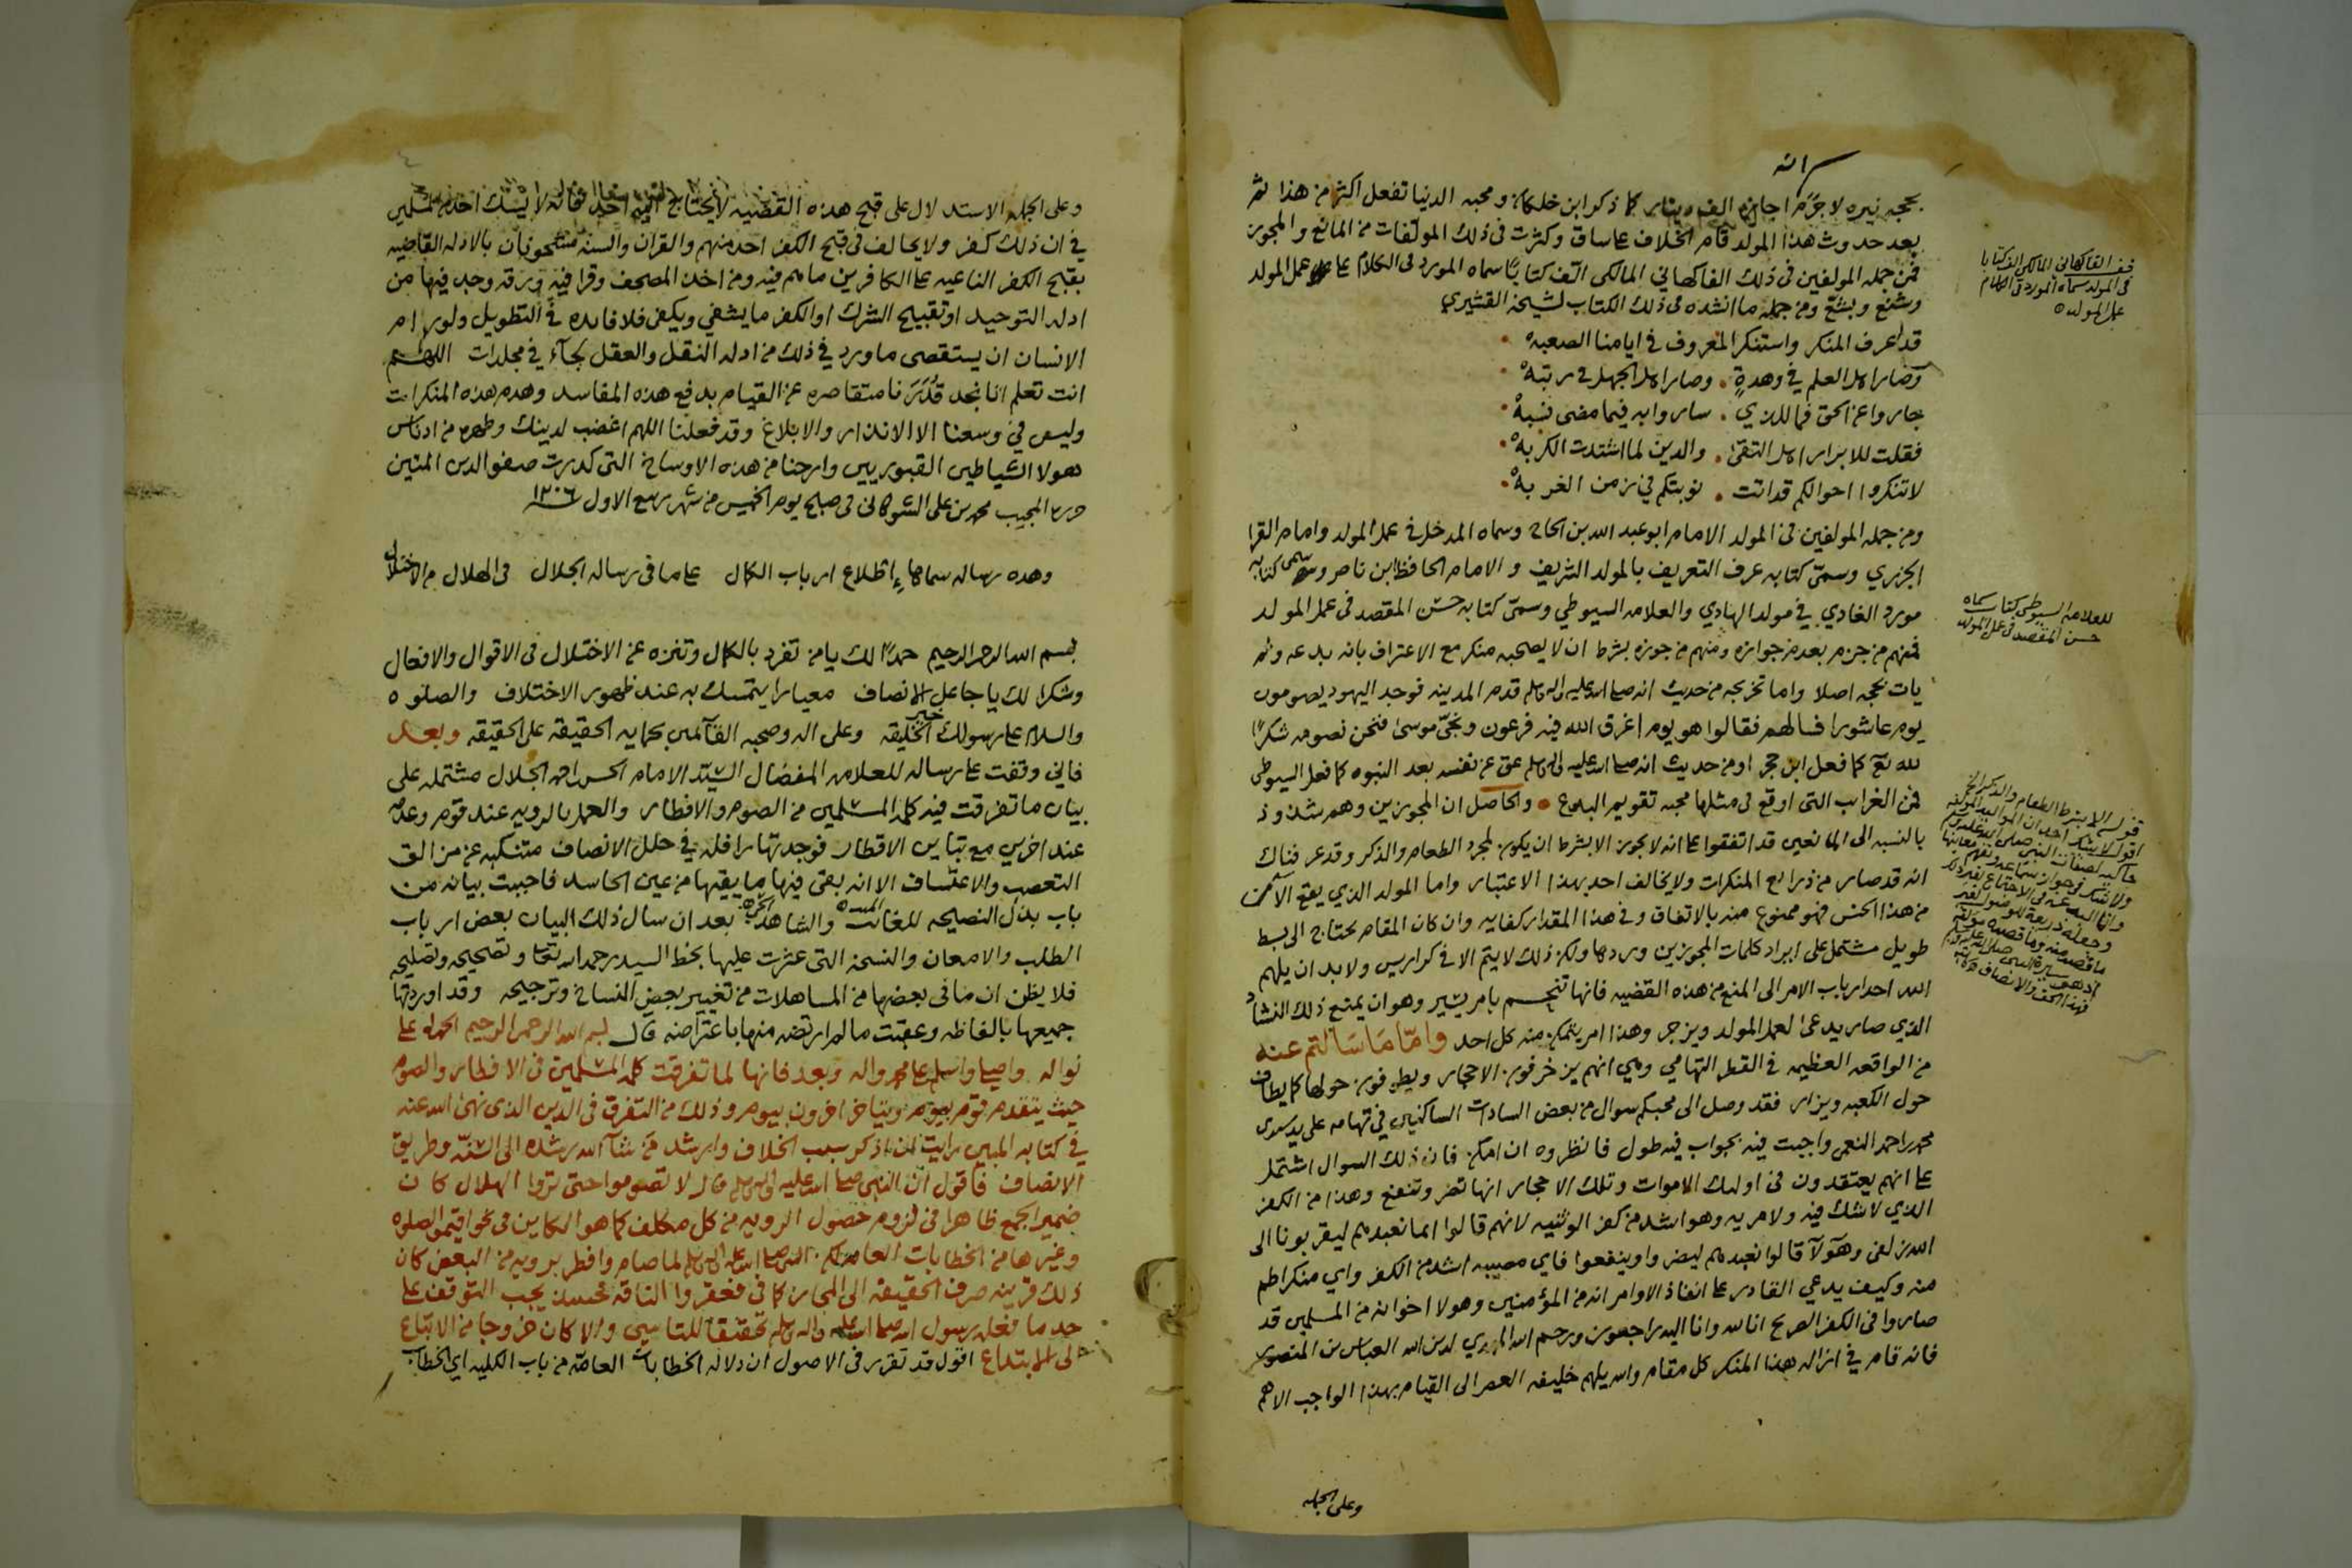 بحجه نيره لا جرم اجازه الف دينار كما ذكر ابن خلكان ومحبه الدنيا تفعل اكثر من هذا ثم
بعد حدوث هذا المولد قام الخلاف على ساق وكثرت في ذلك المولفات من المانع والمجوز
فمن جمله المولفين في ذلك الفاكهاني المالكي الف كتابا سماه المورد في الكلام على عمل المولد
وشنع وبشع ومن جمله ما انشده في ذلك الكتاب لشيخه القشيري
قد عرف المنكر واستنكر المعروف في ايامنا الصعبه
وصار اهل العلم في وهدةٍ . وصار اهل الجهل في رتبه
جاروا عن الحق فما للذي . ساروا به فيما مضى نسبه
فقلت للابرار اهل التقى . والدين لما اشتدت الكربه
لا تنكروا احوالكم قد اتت . نوبتكم في زمن الغربه
ومن جمله المولفين في المولد الامام ابو عبد الله بن الحاج وسماه المدخل في عمل المولد وامام القرا
الجزري وسمى كتابه عرف التعريف بالمولد الشريف والامام الحافظ ابن ناصر وسمى كتابه
مورد الغادي في مولد الهادي والعلامه السيوطي وسمى كتابه حسن المقصد في عمل المولد
فمنهم من جزم بعدم جوازه ومنهم من جوزه بشرط ان لا يصحبه منكر مع الاعتراف بانه بدعه ولم
يات بحجه اصلا واما تخريجه من حديث انه صلى الله عليه واله وسلم قدم المدينه فوجد اليهود يصومون
يوم عاشورا فسالهم فقالوا هو يوم اغرق الله فيه فرعون ونجى موسى فنحن نصومه شكرا
لله تع كما فعل ابن حجر او من حديث انه صلى الله عليه واله وسلم عق عن نفسه بعد النبوه كما فعل السيوطي
فمن الغرايب التي اوقع في مثلها محبه تقويم البدع والحاصل ان المجوزين وهم شذوذ
بالنسبه الى المانعين قد اتفقوا على انه لا يجوز الا بشرط ان يكون لمجرد الطعام والذكر وقد عرفناك
انه قد صار من ذرايع المنكرات ولا يخالف احد بهذا الاعتبار واما المولد الذي يقع الان
من هذا الجنس فهو ممنوع منه بالاتفاق وفي هذا المقدار كفايه وان كان المقام يحتاج الى بسط
طويل مشتمل على ايراد كلمات المجوزين وردها ولكن ذلك لا يتم الا في كراريس ولا بد ان يلهم
الله احد ارباب الامر الى المنع من هذه القضيه فانها تنحسم بامر يسير وهو ان يمنع ذلك النشاد
الذي صار يدعى لعمل المولد ويزجر وهذا امر يتمكن منه كل احد واما ما سالتم عنه
من الواقعه العظيمه في القطر التهامي وهي انهم يزخرفون الاحجار ويطوفون حولها كما يطاف
حول الكعبه ويزار فقد وصل الى محبكم سوال من بعض السادات الساكنين في تهامه على يد سيدي
محمد احمد النعمي واجبت فيه بجواب فيه طول فانظروه ان امكن فان ذلك السوال اشتمل
على انهم يعتقدون في اوليك الاموات وتلك الاحجار انها تضر وتنفع وهذا من الكفر
الذي لا شك فيه ولا مريه وهو اشد من كفر الوثنيه لانهم قالوا انما نعبدهم ليقربونا الى
الله زلفى وهولا قالوا نعبدهم ليضروا وينفعوا فاي مصيبه اشد من الكفر واي منكر اطم
منه وكيف يدعي القادر على انفاذ الاوامر انه من المؤمنين وهولا اخوانه من المسلمين قد
صاروا في الكفر الصريح انا لله وانا اليه راجعون ورحم الله المهدي لدين الله العباس بن المنصور
فانه قام في ازاله هذا المنكر كل مقام والله يلهم خليفه العصر الى القيام بهذا الواجب الاهم
وعلى الجمله
قف الفاكهاني المالكي الف كتابا
في المولد سماه المورد في الكلام
على المولد
للعلامه السيوطي كتاب سماه
حسن المقصد في عمل المولد
وعلى الجمله الاستدلال على قبح هذه القضيه لا يحتاج اليه احد فانه لا يشك احد من المسلمين
في ان ذلك كفر ولا يخالف في قبح الكفر احد منهم والقران والسنه مشحونان بالادله القاضيه
بقبح الكفر الناعيه على الكافرين ما هم فيه ومن اخذ المصحف وقرا فيه ورقه وجد فيها من
ادله التوحيد او تقبيح الشرك او الكفر ما يشفي ويكفي فلا فايده في التطويل ولو رام
الانسان ان يستقصي ما ورد في ذلك من ادله النقل والعقل لجآء في مجلدات اللهم
انت تعلم انا نجد قدرنا متقاصره عن القيام بدفع هذه المفاسد وهدم هذه المنكرات
وليس في وسعنا الا الانذار والابلاغ وقد فعلنا اللهم اغضب لدينك وطهره من ادناس
هولا الشياطين القبوريين وارحنا من هذه الاوساخ التي كدرت صفو الدين المتين
حرره المجيب محمد بن علي الشوكاني في صباح يوم الخميس من شهر ربيع الاول ١٢٠٦
وهذه رساله سماها اطلاع ارباب الكمال على ما في رساله الجلال في الهلال من الاختلال
بسم الله الرحمن الرحيم حمدا لك يا من تفرد بالكمال وتنزه عن الاختلال في الاقوال والافعال
وشكرا لك يا جاعل الانصاف معيارا يتمسك به عند ظهور الاختلاف والصلوه
والسلام على رسولك خير الخليقه وعلى اله وصحبه القآئمين بحمايه الحقيقه على الحقيقه وبعد
فاني وقفت على رساله للعلامه المفضال السيد الامام الحسن احمد الجلال مشتمله على
بيان ما تفرقت فيه كلمه المسلمين من الصوم والافطار والعمل بالرويه عند قوم وعدمه
عند اخرين مع تباين الاقطار فوجدتها رافله في حلل الانصاف متنكبه عن مزالق
التعصب والاعتساف الا انه بقي فيها ما يقيها من عين الحاسد فاحببت بيانه من
باب بذل النصيحه للغائب والشاهد بعد ان سال ذلك البيان بعض ارباب
الطلب والامعان والنسخه التي عثرت عليها بخط السيد رحمه الله تعالى وتصحيحه وتصليحه
فلا يظن ان ما في بعضها من المساهلات من تغيير بعض النساخ وترجيحه وقد اوردتها
جميعها بالفاظه وعقبت ما لم ارتضه منها باعتراضه قال بسم الله الرحمن الرحيم الحمد لله على
نواله واصلي واسلم على محمد واله وبعد فانها لما تفرقت كلمه المسلمين في الافطار والصوم
حيث يتقدم قوم بيوم ويتاخر اخرون بيوم وذلك من التفرق في الدين الذي نهى الله عنه
في كتابه المبين رايت ان اذكر سبب الخلاف وارشد من شآ الله رشده الى السنه وطريق
الانصاف فاقول ان النبي صلى الله عليه واله وسلم قال لا تصوموا حتى تروا الهلال كان
ضمير الجمع ظاهرا في لزوم حصول الرويه من كل مكلف كما هو الكاين في نحو اقيموا الصلوه
وغيرها من الخطابات العامه لكن النبي صلى الله عليه واله وسلم لما صام وافطر برويه من البعض كان
ذلك قرينه صرف الحقيقه الى المجاز كما في فعقروا الناقه فحينئذ يجب التوقف على
حد ما فعله رسول الله صلى الله عليه واله وسلم تحقيقا للتاسي والا كان خروجا من الاتباع
الى الابتداع اقول قد تقرر في الاصول ان دلاله الخطابات العامه من باب الكليه اي الخطاب